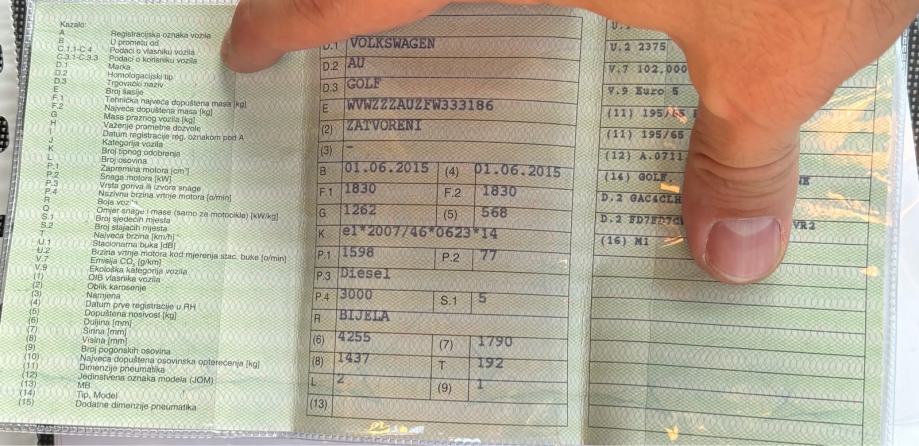 Kazalo:
A Registracijska oznaka vozila
B U prometu od
C.1.1-C.4 Podaci o vlasniku vozila
C.3.1-C.3.3 Podaci o korisniku vozila
D.1 Marka
D.2 Homologacijski tip
D.3 Trgovački naziv
E Broj šasije
F.1 Tehnička najveća dopuštena masa [kg]
F.2 Najveća dopuštena masa [kg]
G Masa praznog vozila [kg]
H Važenje prometne dozvole
I Datum registracije reg. oznakom pod A
J Kategorija vozila
K Broj tipnog odobrenja
L Broj osovina
P.1 Zapremina motora [cm³]
P.2 Snaga motora [kW]
P.3 Vrsta goriva ili izvora snage
P.4 Nazivna brzina vrtnje motora [o/min]
R Boja vozila
Q Omjer snage i mase (samo za motocikle) [kW/kg]
S.1 Broj sjedećih mjesta
S.2 Broj stajaćih mjesta
T Najveća brzina [km/h]
U.1 Stacionarna buka [dB]
U.2 Brzina vrtnje motora kod mjerenja stac. buke [o/min]
V.7 Emisija CO₂ [g/km]
V.9 Ekološka kategorija vozila
(1) OIB vlasnika vozila
(2) Oblik karoserije
(3) Namjena
(4) Datum prve registracije u RH
(5) Dopuštena nosivost [kg]
(6) Duljina [mm]
(7) Širina [mm]
(8) Visina [mm]
(9) Broj pogonskih osovina
(10) Najveća dopuštena osovinska opterećenja [kg]
(11) Dimenzije pneumatika
(12) Jedinstvena oznaka modela (JOM)
(13) MB
(14) Tip, Model
(15) Dodatne dimenzije pneumatika
D.1 VOLKSWAGEN
D.2 AU
D.3 GOLF
E WVWZZZAUZFW333186
(2) ZATVORENI
(3) -
B 01.06.2015 (4) 01.06.2015
F.1 1830 F.2 1830
G 1262 (5) 568
K e1*2007/46*0623*14
P.1 1598 P.2 77
P.3 Diesel
P.4 3000 S.1 5
R BIJELA
(6) 4255 (7) 1790
(8) 1437 T 192
L 2 (9) 1
(13)
U.2 2375
V.7 102,000
V.9 Euro 5
(11) 195/65
(11) 195/65
(12) A.0711
(14) GOLF,
D.2 GAC4CLH
D.2 FD7FD7C VR2
(16) M1